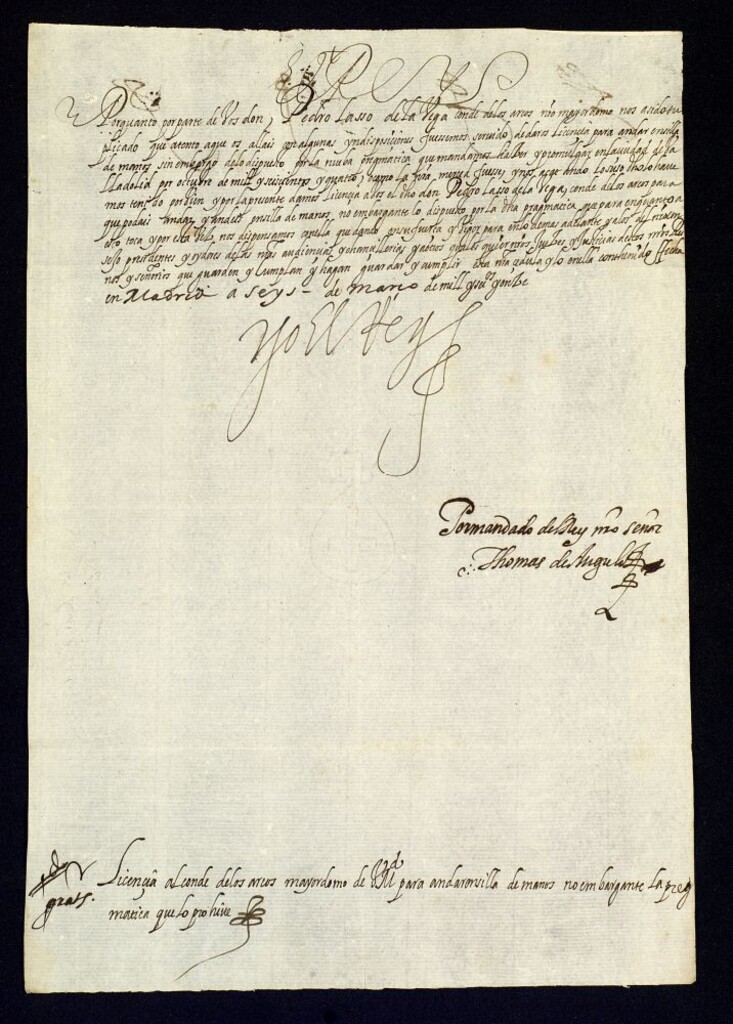 El Rey
Porquanto por parte de Vos don Pedro Lasso de la Vega conde de los arcos nro mayordomo nos a sido su
plicado que atento a que os allais con algunas yndisposiciones fuessemos servido de daros licencia para andar en silla
de manos sin embargo de lo dispuesto por la nueva pregmatica que mandamos hazer y promulgar en la ciudad de Va
lladolid por otubre de mill y seiscientos y quatro, como la nra merced fuesse, y nos acatando lo suso dho lo have
mos tenido por bien y por la presente damos licencia a vos el dho don Pedro Lasso de la Vega, conde de los arcos para
que podais andar y andeis en silla de manos no embargante lo dispuesto por la dha pragmatica que para en quanto a
esto toca y por esta vez, nos dispensamos con ella quedando en su fuerça y vigor para en lo demas adelante y a los del nro con
sejo presidentes y oydores de las nras audiencias y chancillerias y a otros quales quier nros Juezes y Justicias destos nros Rey
nos y señorios que guarden y cumplan y hagan guardar y cumplir esta nra cedula y lo en ella contenido ffecha
en Madrid a seys de março de mill y sei
Yo El Rey
Por mandado del Rey nro señor
Thomas de Angulo
grats.
Licencia al conde de los arcos mayordomo de V Md para andar en silla de manos no embargante la preg
matica que lo prohive